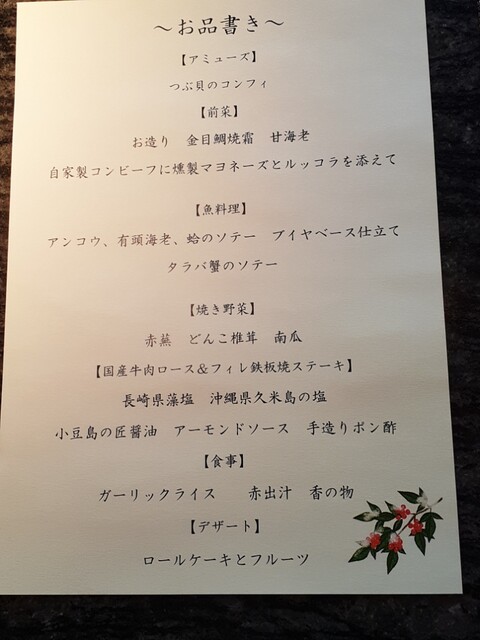 ～お品書き～
【アミューズ】
つぶ貝のコンフィ
【前菜】
お造り　金目鯛焼霜　甘海老
自家製コンビーフに燻製マヨネーズとルッコラを添えて
【魚料理】
アンコウ、有頭海老、蛤のソテー　ブイヤベース仕立て
タラバ蟹のソテー
【焼き野菜】
赤蕪　どんこ椎茸　南瓜
【国産牛肉ロース＆フィレ鉄板焼ステーキ】
長崎県藻塩　沖縄県久米島の塩
小豆島の匠醤油　アーモンドソース　手造りポン酢
【食事】
ガーリックライス　　赤出汁　香の物
【デザート】
ロールケーキとフルーツ